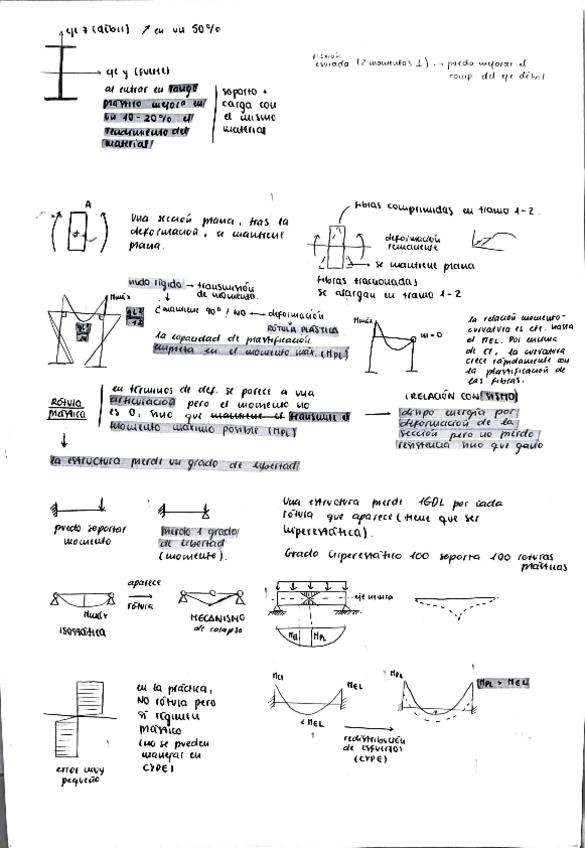 eje z (débil) ↗ en un 50%
eje y (fuerte)
al entrar en rango
plástico mejora en
un 10-20% el
rendimiento del
material
soporto +
carga con
el mismo
material
esviada (2 momentos ⊥) → puedo mejorar el
comp del eje débil
A
Una sección plana, tras la
deformación, se mantiene
plana.
Fibras comprimidas en tramo 1-2.
deformación
remanente
se mantiene plana
Fibras traccionadas
se alargan en tramo 1-2
nudo rígido → transmisión
de momento.
Mmáx
¿mantiene 90°? NO ← deformación
RÓTULA PLÁSTICA
la capacidad de plastificación
empieza en el momento máx. (MPL)
Mmáx
M=0
la relación momento-
curvatura es cte. hasta
el MEL. Por encima
de él, la curvatura
crece rápidamente con
la plastificación de
las fibras.
RÓTULA
PLÁSTICA
en términos de def. se parece a una
articulación pero el momento no
es 0, sino que transmite el
momento máximo posible (MPL)
¡RELACIÓN CON SISMO!
disipo energía por
deformación de la
sección pero no pierdo
resistencia sino que gano
la estructura pierde un grado de libertad
puedo soportar
momento
pierdo 1 grado
de libertad
(momento).
Una estructura pierde 1GDL por cada
rótula que aparece (tiene que ser
hiperestática).
Grado hiperestático 100 soporta 100 roturas
plásticas
aparece
rótula
Mmáx
isostática
MECANISMO
de colapso
eje neutro
MEL
MPL
en la práctica,
NO rótula pero
sí régimen
plástico
(no se pueden
manejar en
CYPE)
error muy
pequeño
MEL
MEL
< MEL
redistribución
de esfuerzos
(CYPE)
MPL
MPL > MEL